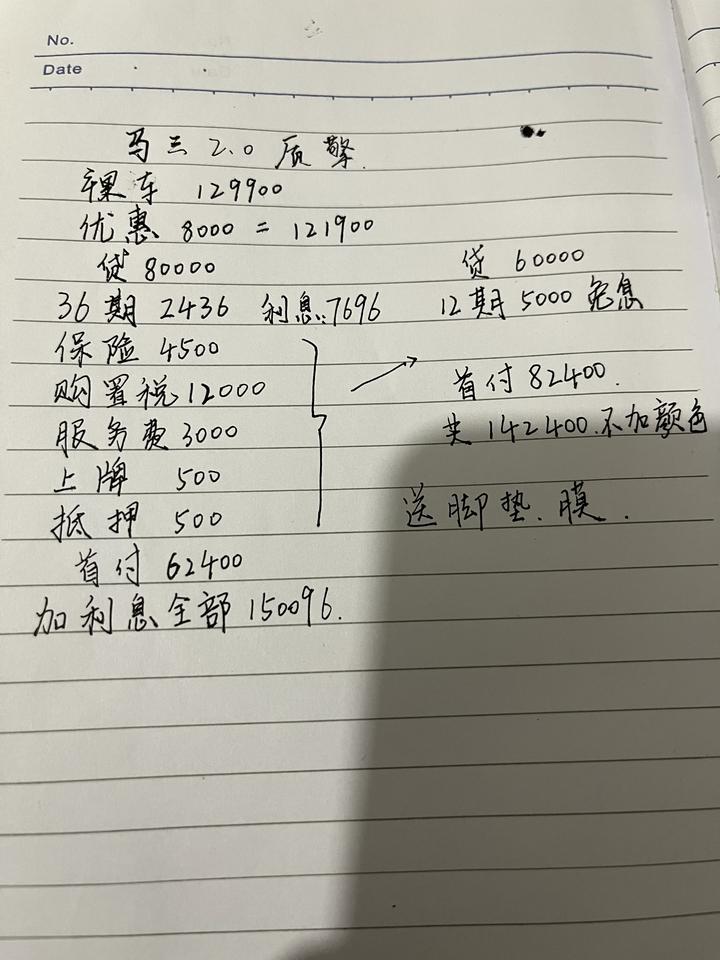 No.
Date
马三 2.0 质擎.
裸车 129900
优惠 8000 = 121900
贷 80000
36期 2436 利息:7696
保险 4500
购置税 12000
服务费 3000
上牌 500
抵押 500
首付 62400
加利息全部 150096.
贷 60000
12期 5000 免息
首付 82400.
共 142400.不加颜色
送脚垫、膜.